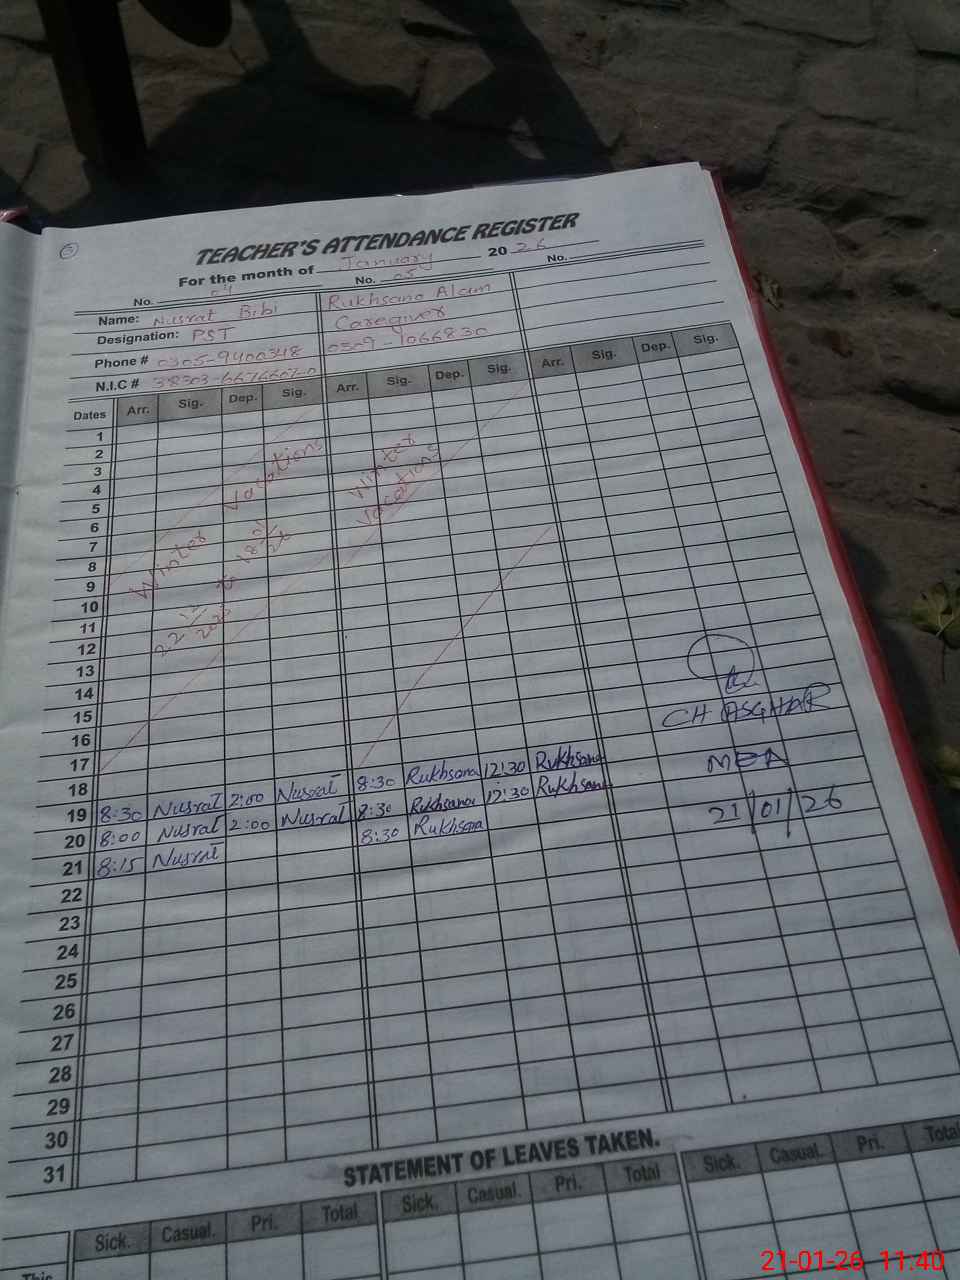 5
TEACHER'S ATTENDANCE REGISTER
For the month of January 2026
No. 04 No. 05 No.
Name: Nusrat Bibi Rukhsana Alam
Designation: PST Caregiver
Phone # 0305-9400348 0309-1066830
N.I.C # 38303-6676607-0
Dates Arr. Sig. Dep. Sig. Arr. Sig. Dep. Sig. Arr. Sig. Dep. Sig.
1
2
3
4
5
6
7
8
9
10
11
12
13
14
15
16
17
18
Winter Vacations
22 12/2025 to 18 01/26
Winter
Vacations
19 8:30 Nusrat 2:00 Nusrat 8:30 Rukhsana 12:30 Rukhsana
20 8:00 Nusrat 2:00 Nusrat 8:30 Rukhsana 12:30 Rukhsana
21 8:15 Nusrat 8:30 Rukhsana
CH ASGHAR
MEA
21/01/26
22
23
24
25
26
27
28
29
30
31
STATEMENT OF LEAVES TAKEN.
Sick. Casual. Pri. Total Sick. Casual. Pri. Total Sick. Casual. Pri. Total
This
21-01-26 11:40